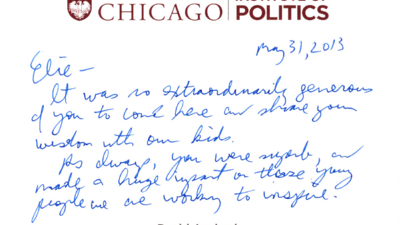 CHICAGO
POLITICS
May 31, 2013
Elie –
It was so extraordinarily generous
of you to come here and share your
wisdom with our kids.
As always, you were superb, and
made a huge impact on those young
people we are working to inspire.